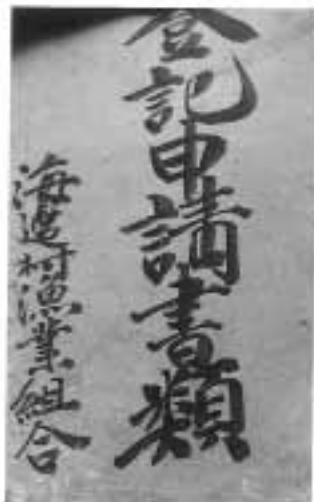 登記申請書類
海辺村漁業組合